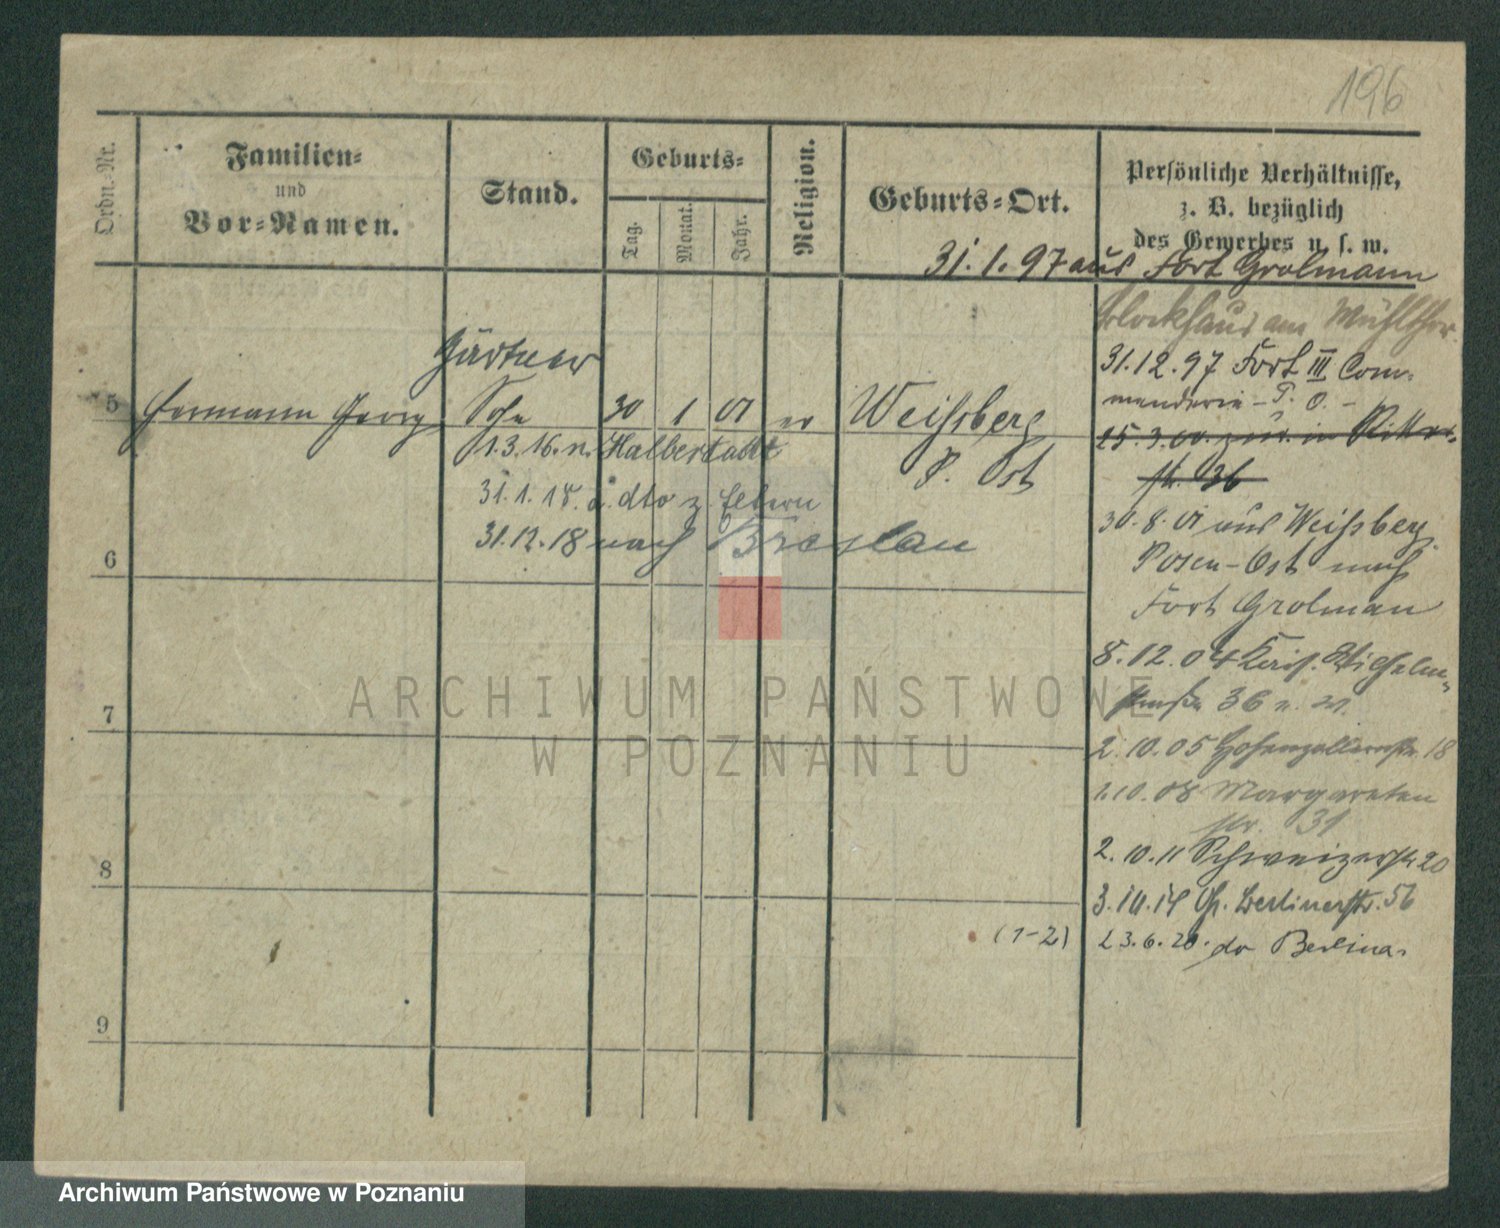 196
Ordn.-Nr.
Familien-
und
Vor-Namen.
Stand.
Geburts-
Tag.
Monat.
Jahr.
Religion.
Geburts-Ort.
Persönliche Verhältnisse,
z. B. bezüglich
des Gewerbes u. s. w.
31.1.97 aus Fort Grolmann
Blockhaus am Mühlthor
31.12.97 Fort III Com-
manderie - P. O. -
Gärtner
5 Hermann Georg Sohn 30 1 01 ev Weißberg
P. Ost
1.3.16. n. Halberstadt
31.1.18. a. dto z. Eltern
31.12.18 nach Breslau
15.3.00. zur. in Ritter-
str. 36
30.8.01 aus Weißberg
Posen-Ost nach
Fort Grolman
8.12.04 Kais. Wilhelm-
straße 36
2.10.05 Hohenzollernstr. 18
1.10.08 Margareten
str. 31
2.10.11 Schweizerstr 20
3.10.14 Gr. Berlinerstr. 56
(1-2) 23.6.20. do Berlina.
6
7
8
9
ARCHIWUM PAŃSTWOWE
W POZNANIU
Archiwum Państwowe w Poznaniu